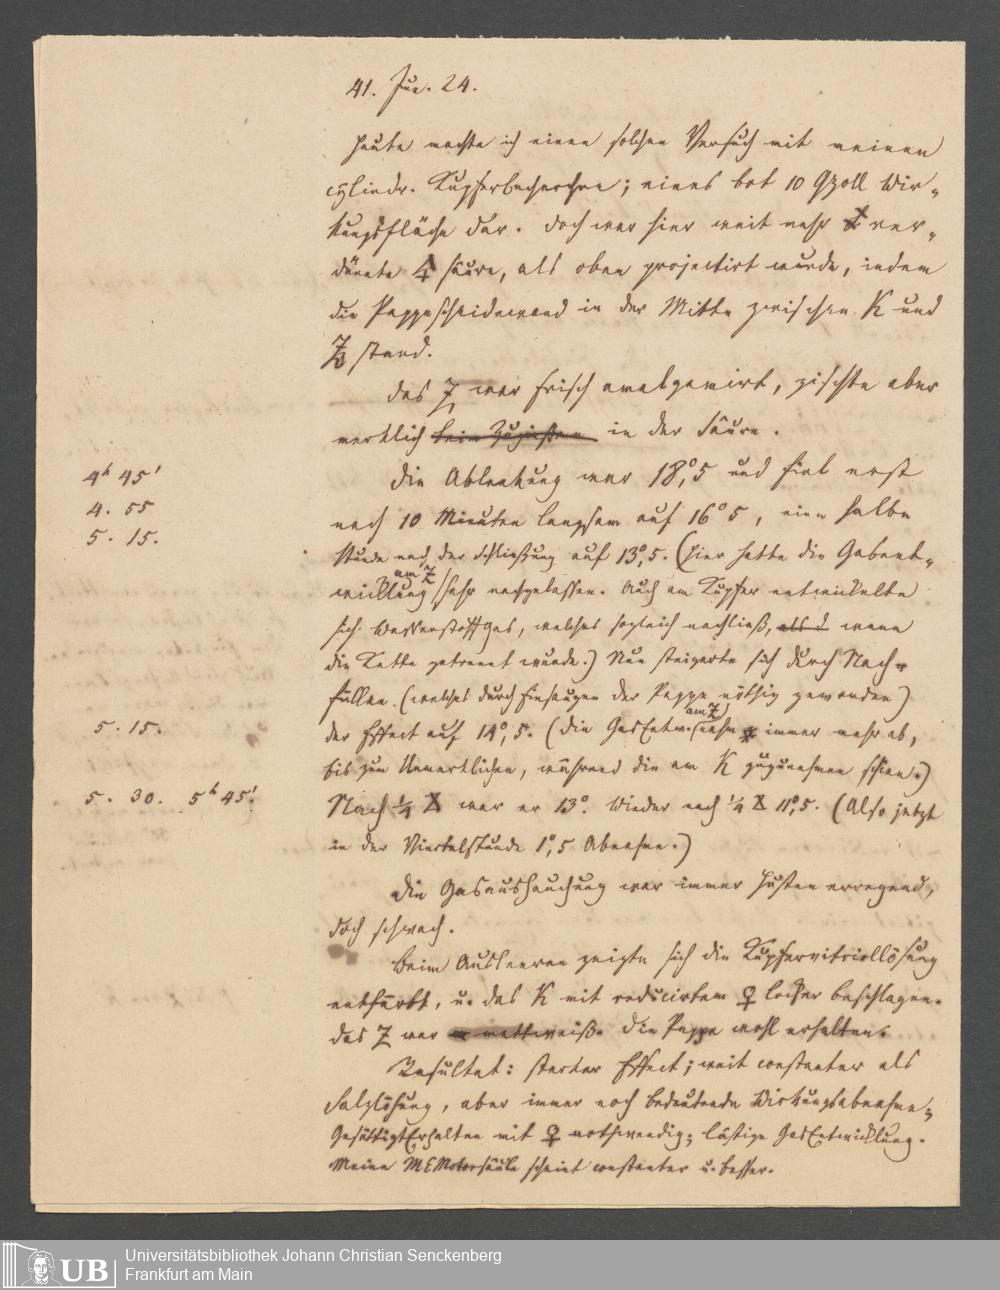 41. Jun. 24.
Heute machte ich einen solchen Versuch mit meinen
cylindr. Kupferbecherchen; eines bot 10 Qzoll Wir-
kungsfläche dar. Doch war hier weit mehr ver-
dünnte Säure, als oben projectirt wurde, indem
die Pappscheidewand in der Mitte zwischen K und
Z stand.
Das Z war frisch amalgamirt, zischte aber
merklich beim Zugießen in der Säure.
4h 45' Die Ablenkung war 18°,5 und fiel erst
4. 55 nach 10 Minuten langsam auf 16°5, eine halbe
5. 15. Stunde nach der Schließung auf 13°,5. (Hier hatte die Gasent-
wicklung am Z sehr nachgelassen. Auch am Kupfer entwickelte
sich Wasserstoffgas, welches sogleich nachließ, als d wenn
die Kette getrennt wurde.) Nun steigerte sich durch Nach-
füllen (welches durch Einsaugen der Pappe nöthig geworden)
5. 15. der Effect auf 14°,5. (Die GasEntw. am Z nahm immer mehr ab,
bis zum Unmerklichen, während die am K zuzunehmen schien.)
5. 30. 5h 45'. Nach 1/4 war er 13°. Wieder nach 1/4 11°,5. (Also jetzt
in der Viertelstunde 1°,5 Abnahme.)
Die Gasaushauchung war immer Husten erregend,
doch schwach.
Beim Ausleeren zeigte sich die Kupfervitriollösung
entfärbt, u. das K mit reducirtem ♀ locker beschlagen.
Das Z war mattweiß. Die Pappe wohl erhalten.
Resultat: starker Effect; weit constanter als
Salzlösung, aber immer noch bedeutende Wirkungsabnahme;
GesättigtErhalten mit ♀ nothwendig; lästige GasEntwicklung.
Meine MEMotorsäule scheint constanter u. besser.
UB
Universitätsbibliothek Johann Christian Senckenberg
Frankfurt am Main